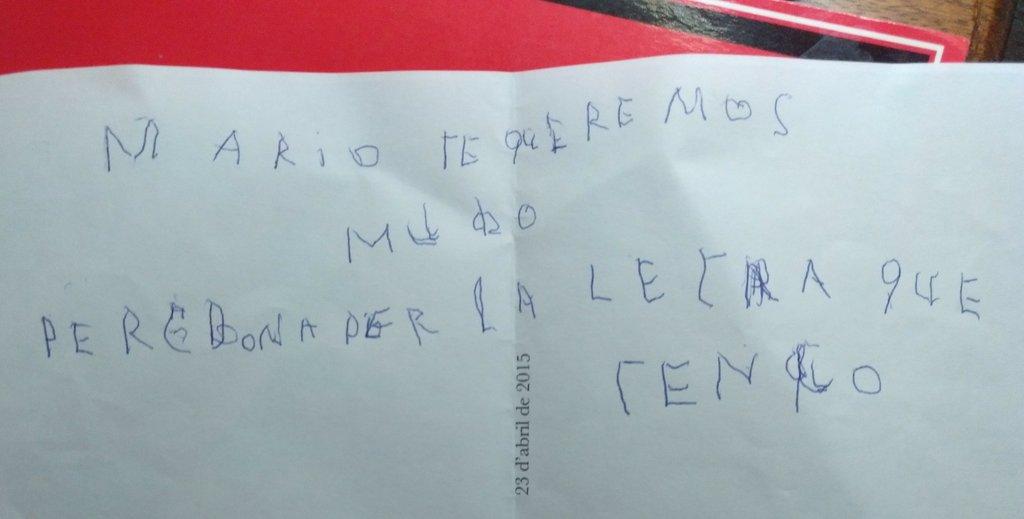 MARIO TE QUEREMOS
MUCHO
PEREDONA PER LA LETRA QUE
TENGO
23 d'abril de 2015